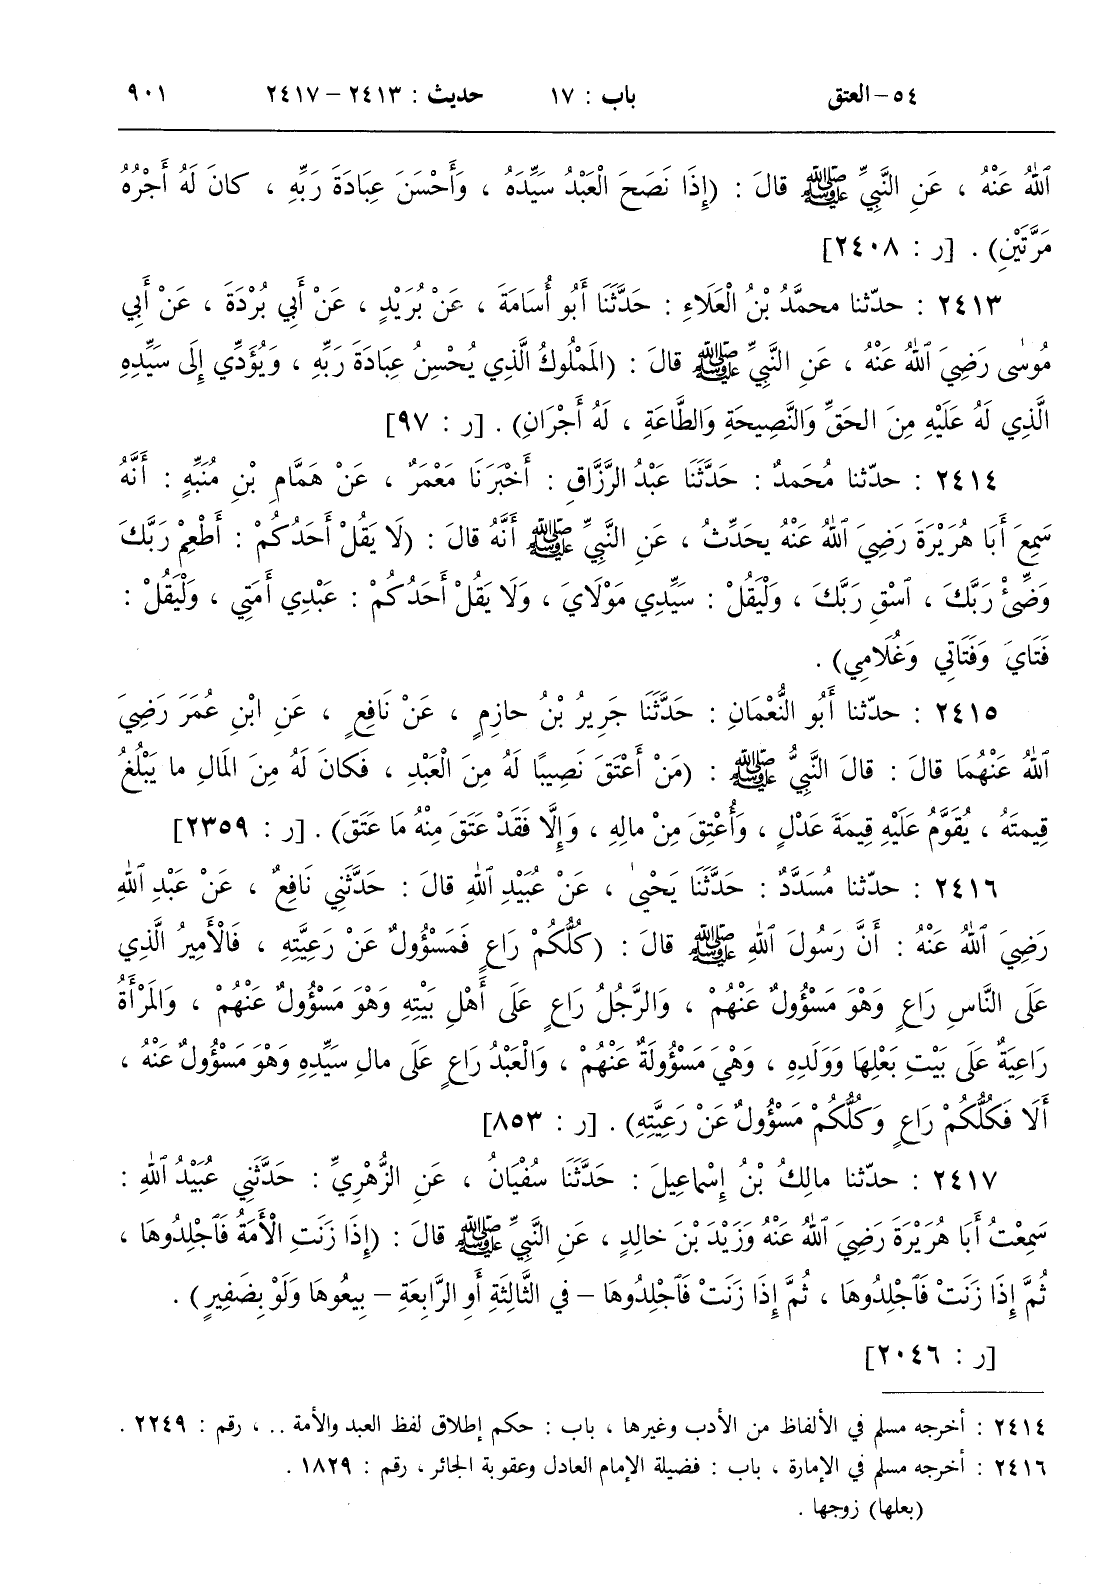 ٥٤-العتق باب : ١٧ حديث : ٢٤١٣ - ٢٤١٧ ٩٠١
ٱللهُ عَنْهُ ، عَنِ النَّبِيِّ ﷺ قالَ : (إِذَا نَصَحَ الْعَبْدُ سَيِّدَهُ ، وَأَحْسَنَ عِبَادَةَ رَبِّهِ ، كانَ لَهُ أَجْرُهُ
مَرَّتَيْنِ) . [ر : ٢٤٠٨]
٢٤١٣ : حدّثنا محمَّدُ بْنُ الْعَلَاءِ : حَدَّثَنَا أَبُو أُسَامَةَ ، عَنْ بُرَيْدٍ ، عَنْ أَبِي بُرْدَةَ ، عَنْ أَبِي
مُوسٰى رَضِيَ ٱللهُ عَنْهُ ، عَنِ النَّبِيِّ ﷺ قالَ : (المَمْلُوكُ الَّذِي يُحْسِنُ عِبَادَةَ رَبِّهِ ، وَيُؤَدِّي إِلَى سَيِّدِهِ
الَّذِي لَهُ عَلَيْهِ مِنَ الحَقِّ وَالنَّصِيحَةِ وَالطَّاعَةِ ، لَهُ أَجْرَانِ) . [ر : ٩٧]
٢٤١٤ : حدّثنا مُحَمدٌ : حَدَّثَنَا عَبْدُ الرَّزَّاقِ : أَخْبَرَنَا مَعْمَرٌ ، عَنْ هَمَّامِ بْنِ مُنَبِّهٍ : أَنَّهُ
سَمِعَ أَبَا هُرَيْرَةَ رَضِيَ ٱللهُ عَنْهُ يحَدِّثُ ، عَنِ النَّبِيِّ ﷺ أَنَّهُ قالَ : (لَا يَقُلْ أَحَدُكُمْ : أَطْعِمْ رَبَّكَ
وَضِّئْ رَبَّكَ ، ٱسْقِ رَبَّكَ ، وَلْيَقُلْ : سَيِّدِي مَوْلَايَ ، وَلَا يَقُلْ أَحَدُكُمْ : عَبْدِي أَمَتِي ، وَلْيَقُلْ :
فَتَايَ وَفَتَاتِي وَغُلَامِي) .
٢٤١٥ : حدّثنا أَبُو النُّعْمَانِ : حَدَّثَنَا جَرِيرُ بْنُ حازِمٍ ، عَنْ نَافِعٍ ، عَنِ ابْنِ عُمَرَ رَضِيَ
ٱللهُ عَنْهُمَا قالَ : قالَ النَّبِيُّ ﷺ : (مَنْ أَعْتَقَ نَصِيبًا لَهُ مِنَ الْعَبْدِ ، فَكانَ لَهُ مِنَ المَالِ ما يَبْلُغُ
قِيمتَهُ ، يُقَوَّمُ عَلَيْهِ قِيمَةَ عَدْلٍ ، وَأُعْتِقَ مِنْ مالِهِ ، وَإِلَّا فَقَدْ عَتَقَ مِنْهُ مَا عَتَقَ) . [ر : ٢٣٥٩]
٢٤١٦ : حدّثنا مُسَدَّدٌ : حَدَّثَنَا يَحْيىٰ ، عَنْ عُبَيْدِ ٱللهِ قالَ : حَدَّثَنِي نَافِعٌ ، عَنْ عَبْدِ ٱللهِ
رَضِيَ ٱللهُ عَنْهُ : أَنَّ رَسُولَ ٱللهِ ﷺ قالَ : (كُلُّكُمْ رَاعٍ فَمَسْؤُولٌ عَنْ رَعِيَّتِهِ ، فَالْأَمِيرُ الَّذِي
عَلَى النَّاسِ رَاعٍ وَهْوَ مَسْؤُولٌ عَنْهُمْ ، وَالرَّجُلُ رَاعٍ عَلَى أَهْلِ بَيْتِهِ وَهْوَ مَسْؤُولٌ عَنْهُمْ ، وَالمَرْأَةُ
رَاعِيَةٌ عَلَى بَيْتِ بَعْلِهَا وَوَلَدِهِ ، وَهْيَ مَسْؤُولَةٌ عَنْهُمْ ، وَالْعَبْدُ رَاعٍ عَلَى مالِ سَيِّدِهِ وَهْوَ مَسْؤُولٌ عَنْهُ ،
أَلَا فَكُلُّكُمْ رَاعٍ وَكُلُّكُمْ مَسْؤُولٌ عَنْ رَعِيَّتِهِ) . [ر : ٨٥٣]
٢٤١٧ : حدّثنا مالِكُ بْنُ إِسْماعِيلَ : حَدَّثَنَا سُفْيَانُ ، عَنِ الزُّهْرِيِّ : حَدَّثَنِي عُبَيْدُ ٱللهِ :
سَمِعْتُ أَبَا هُرَيْرَةَ رَضِيَ ٱللهُ عَنْهُ وَزَيْدَ بْنَ خالِدٍ ، عَنِ النَّبِيِّ ﷺ قالَ : (إِذَا زَنَتِ الْأَمَةُ فَٱجْلِدُوهَا ،
ثُمَّ إِذَا زَنَتْ فَٱجْلِدُوهَا ، ثُمَّ إِذَا زَنَتْ فَٱجْلِدُوهَا - في الثَّالِثَةِ أَوِ الرَّابِعَةِ - بِيعُوهَا وَلَوْ بِضَفِيرٍ) .
[ر : ٢٠٤٦]
٢٤١٤ : أخرجه مسلم في الألفاظ من الأدب وغيرها ، باب : حكم إطلاق لفظ العبد والأمة .. ، رقم : ٢٢٤٩ .
٢٤١٦ : أخرجه مسلم في الإمارة ، باب : فضيلة الإمام العادل وعقوبة الجائر ، رقم : ١٨٢٩ .
(بعلها) زوجها .